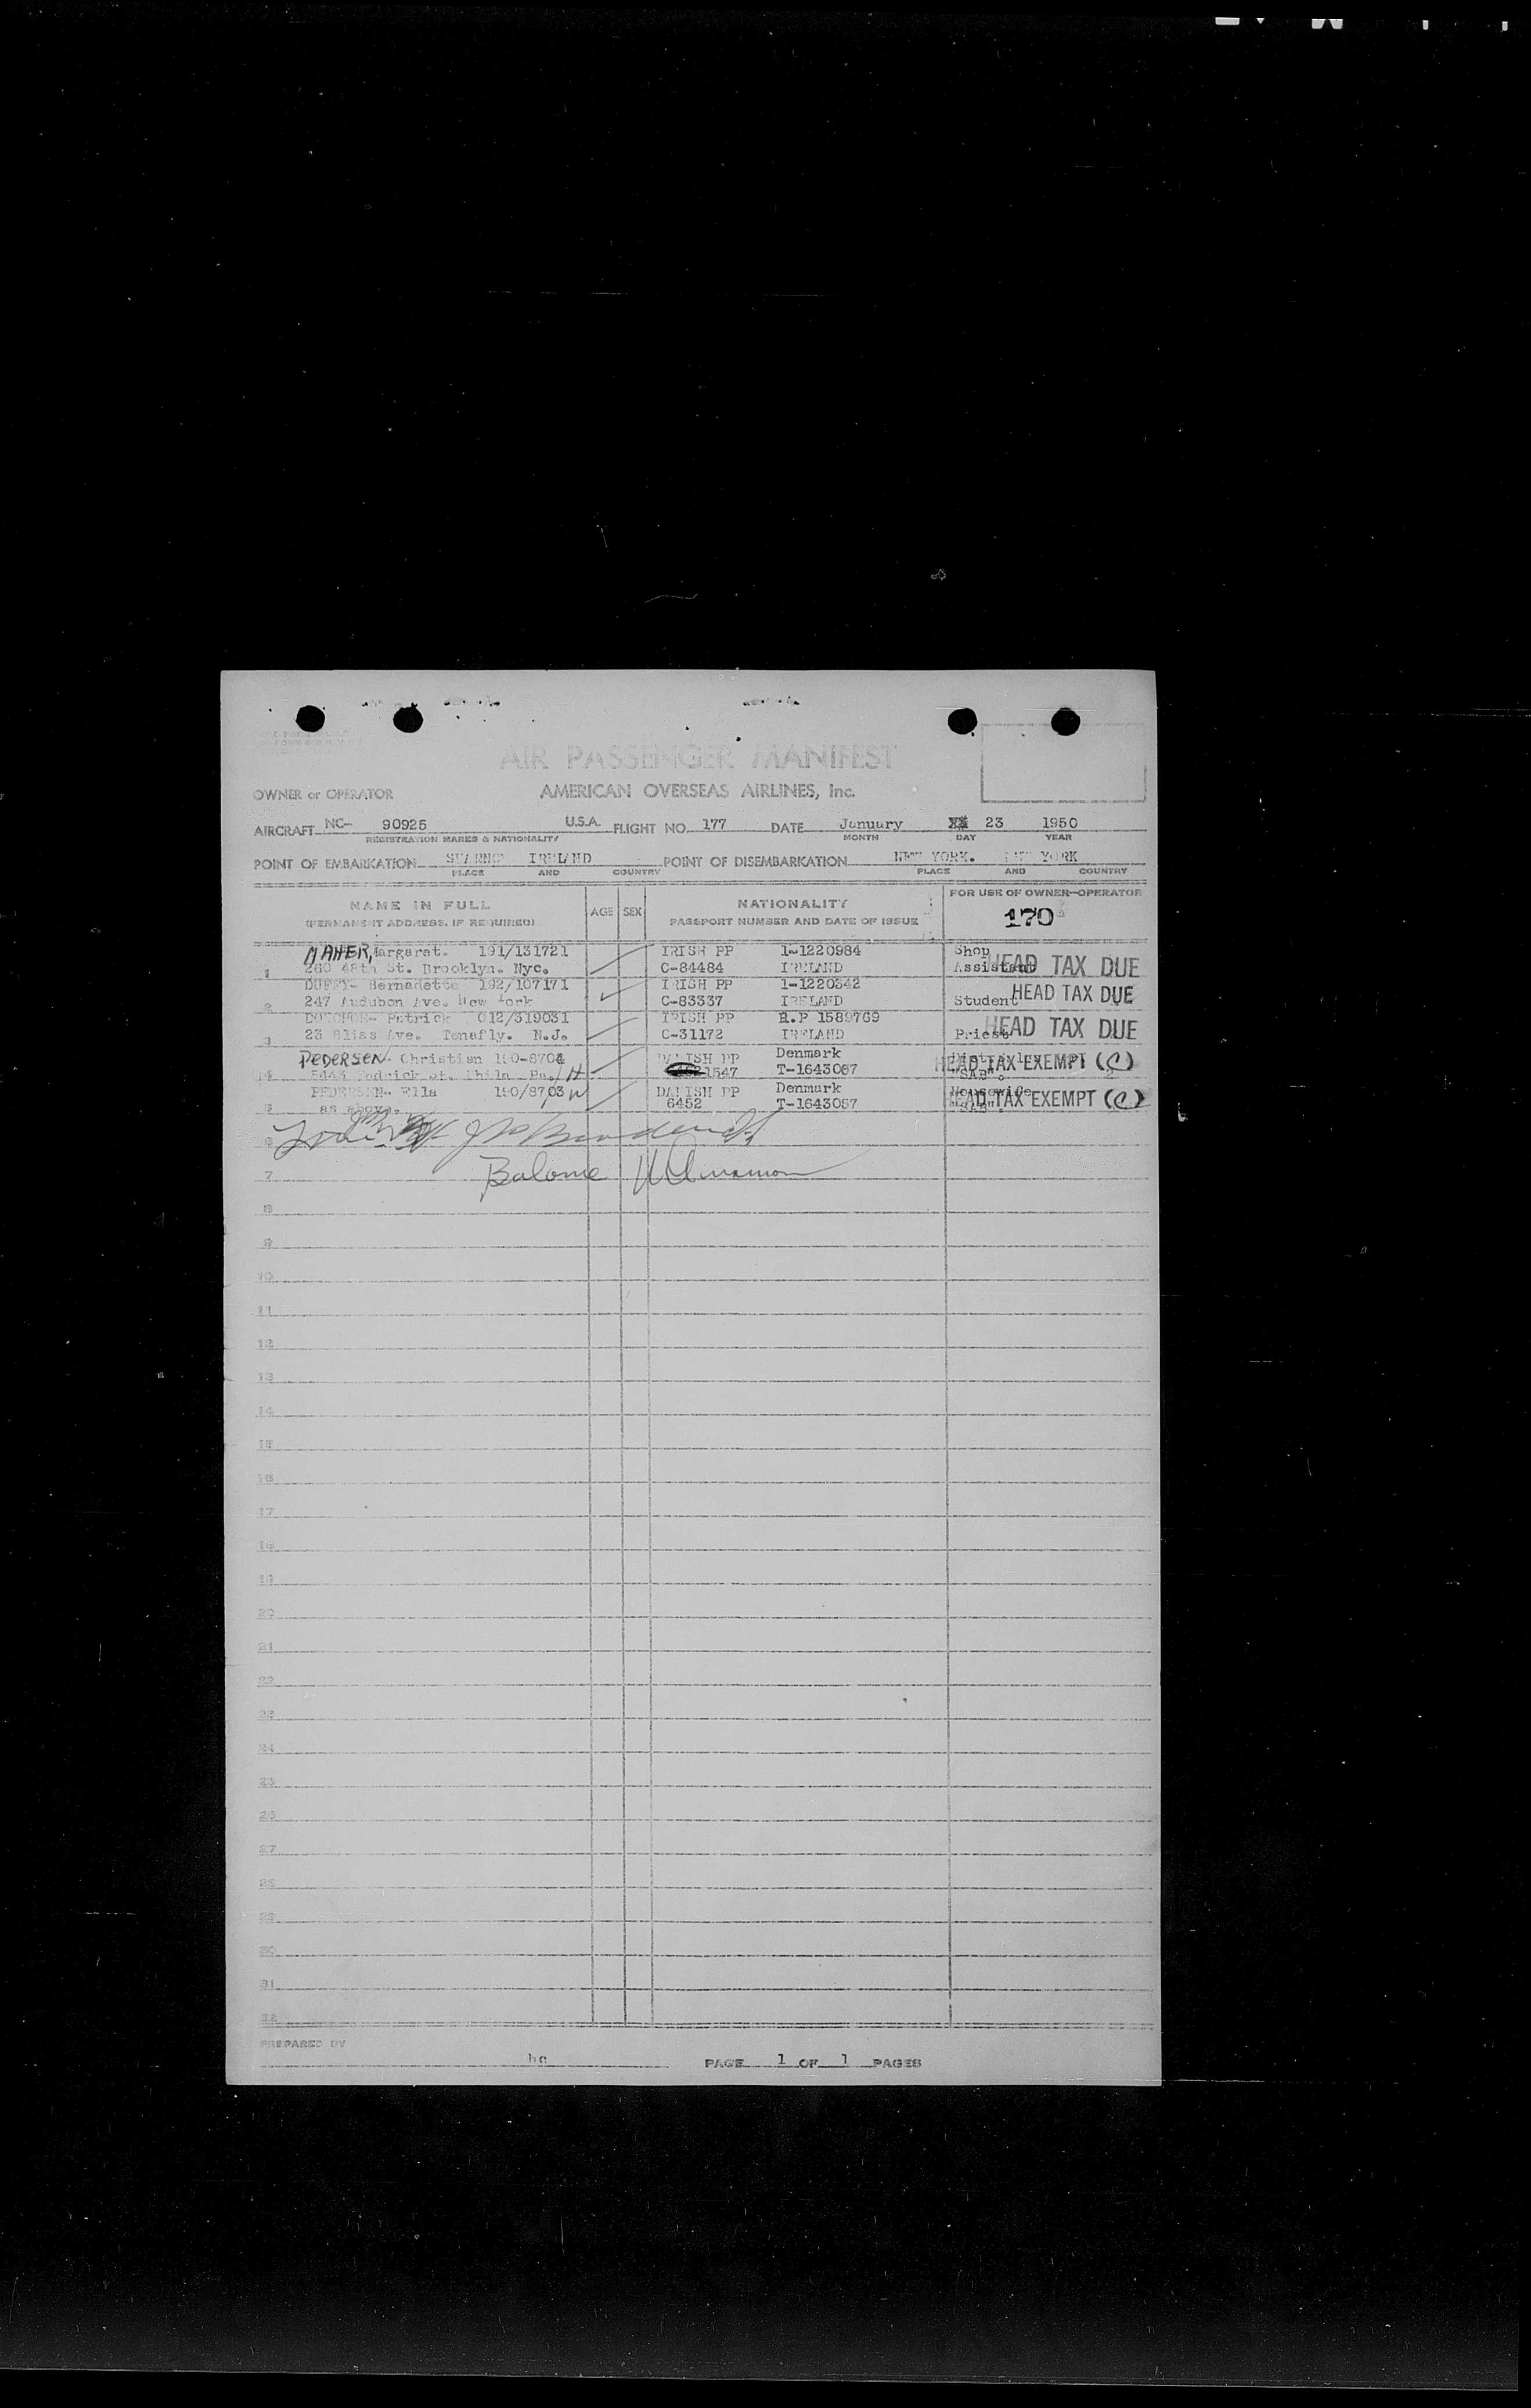 AIR PASSENGER MANIFEST
OWNER or OPERATOR AMERICAN OVERSEAS AIRLINES, Inc.
AIRCRAFT NC- 90925 U.S.A. FLIGHT NO. 177 DATE January 23 1950
REGISTRATION MARKS & NATIONALITY MONTH DAY YEAR
POINT OF EMBARKATION SHANNON IRELAND POINT OF DISEMBARKATION NEW YORK. NEW YORK
PLACE AND COUNTRY PLACE AND COUNTRY
NAME IN FULL
(PERMANENT ADDRESS, IF REQUIRED)
AGE SEX
NATIONALITY
PASSPORT NUMBER AND DATE OF ISSUE
FOR USE OF OWNER-OPERATOR
170
MAHER, Margaret. 191/131721 IRISH PP 1-1220984 Shop
1 260 48th St. Brooklyn. Nyc. C-84484 IRELAND Assistant HEAD TAX DUE
DUFFY- Bernadette 192/107171 IRISH PP 1-1220342
2 247 Audubon Ave. New York C-83337 IRELAND Student HEAD TAX DUE
Patrick 012/319031 IRISH PP R.P 1589769
3 23 Bliss Ave. Tenafly. N.J. C-31172 IRELAND Priest HEAD TAX DUE
PEDERSEN. Christian DANISH PP Denmark
4 St. Phila Pa. H 1547 T-1643087 HEAD TAX EXEMPT (C)
PEDERSEN- Ella 190/8703 W DANISH PP Denmark Housewife
5 as above. 6452 T-1643057 HEAD TAX EXEMPT (C)
6
7
8
9
10
11
12
13
14
15
16
17
18
19
20
21
22
23
24
25
26
27
28
29
30
31
32
PREPARED BY
hc PAGE 1 OF 1 PAGES